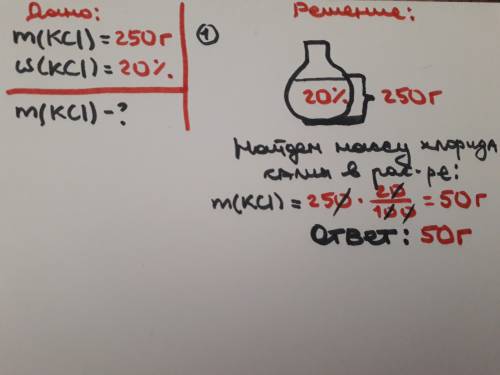 Дано:
m(KCl) = 250г
ω(KCl) = 20%.
m(KCl) - ?
①
Решение:
20%. 250г
Найдем массу хлорида
калия в рас-ре:
m(KCl) = 250 · 20/100 = 50г
Ответ: 50г